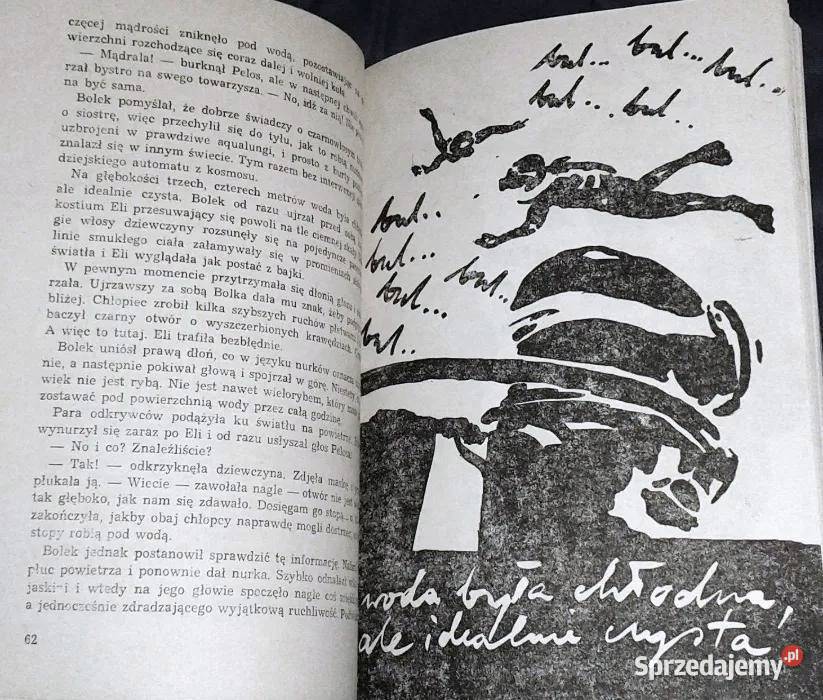 częcej mądrości zniknęło pod wodą, pozostawiając na
wierzchni rozchodzące się coraz dalej i wolniej koła.
— Mądrala! — burknął Pelos, ale w następnej chwili
rzał bystro na swego towarzysza. — No, idź za nią! Nie
na być sama.
Bolek pomyślał, że dobrze świadczy o czarnowłosym
o siostrę, więc przechylił się do tyłu, jak to robią
uzbrojeni w prawdziwe aqualungi, i prosto z burty
znalazł się w innym świecie. Tym razem bez interwencji
dziejskiego automatu z kosmosu.
Na głębokości trzech, czterech metrów woda była
ale idealnie czysta. Bolek od razu ujrzał przed sobą
kostium Eli przesuwający się powoli na tle ciemnej skały.
gie włosy dziewczyny rozsunęły się na pojedyncze
linie smukłego ciała załamywały się w promieniach
światła i Eli wyglądała jak postać z bajki.
W pewnym momencie przytrzymała się dłonią głazu i
rzała. Ujrzawszy za sobą Bolka dała mu znak, żeby
bliżej. Chłopiec zrobił kilka szybszych ruchów płetwami
baczył czarny otwór o wyszczerbionych krawędziach.
A więc to tutaj. Eli trafiła bezbłędnie.
Bolek uniósł prawą dłoń, co w języku nurków oznacza
nie, a następnie pokiwał głową i spojrzał w górę. Niestety,
wiek nie jest rybą. Nie jest nawet wielorybem, który może
zostawać pod powierzchnią wody przez całą godzinę.
Para odkrywców podążyła ku światłu na powietrze.
wynurzył się zaraz po Eli i od razu usłyszał głos Pelosa:
— No i co? Znaleźliście?
— Tak! — odkrzyknęła dziewczyna. Zdjęła maskę i
płukała ją. — Wiecie — zawołała nagle — otwór nie jest
tak głęboko, jak nam się zdawało. Dosięgam go stopą —
zakończyła, jakby obaj chłopcy naprawdę mogli dostrzec,
stopy robią pod wodą.
Bolek jednak postanowił sprawdzić tę informację.
płuc powietrza i ponownie dał nurka. Szybko odnalazł
jaskini i wtedy na jego głowie spoczęło nagle coś
a jednocześnie zdradzającego wyjątkową ruchliwość.
62
bul... bul... bul...
bul... bul..
bul..
bul...
bul... bul..
bul..
woda była chłodna,
ale idealnie czysta
Sprzedajemy.pl